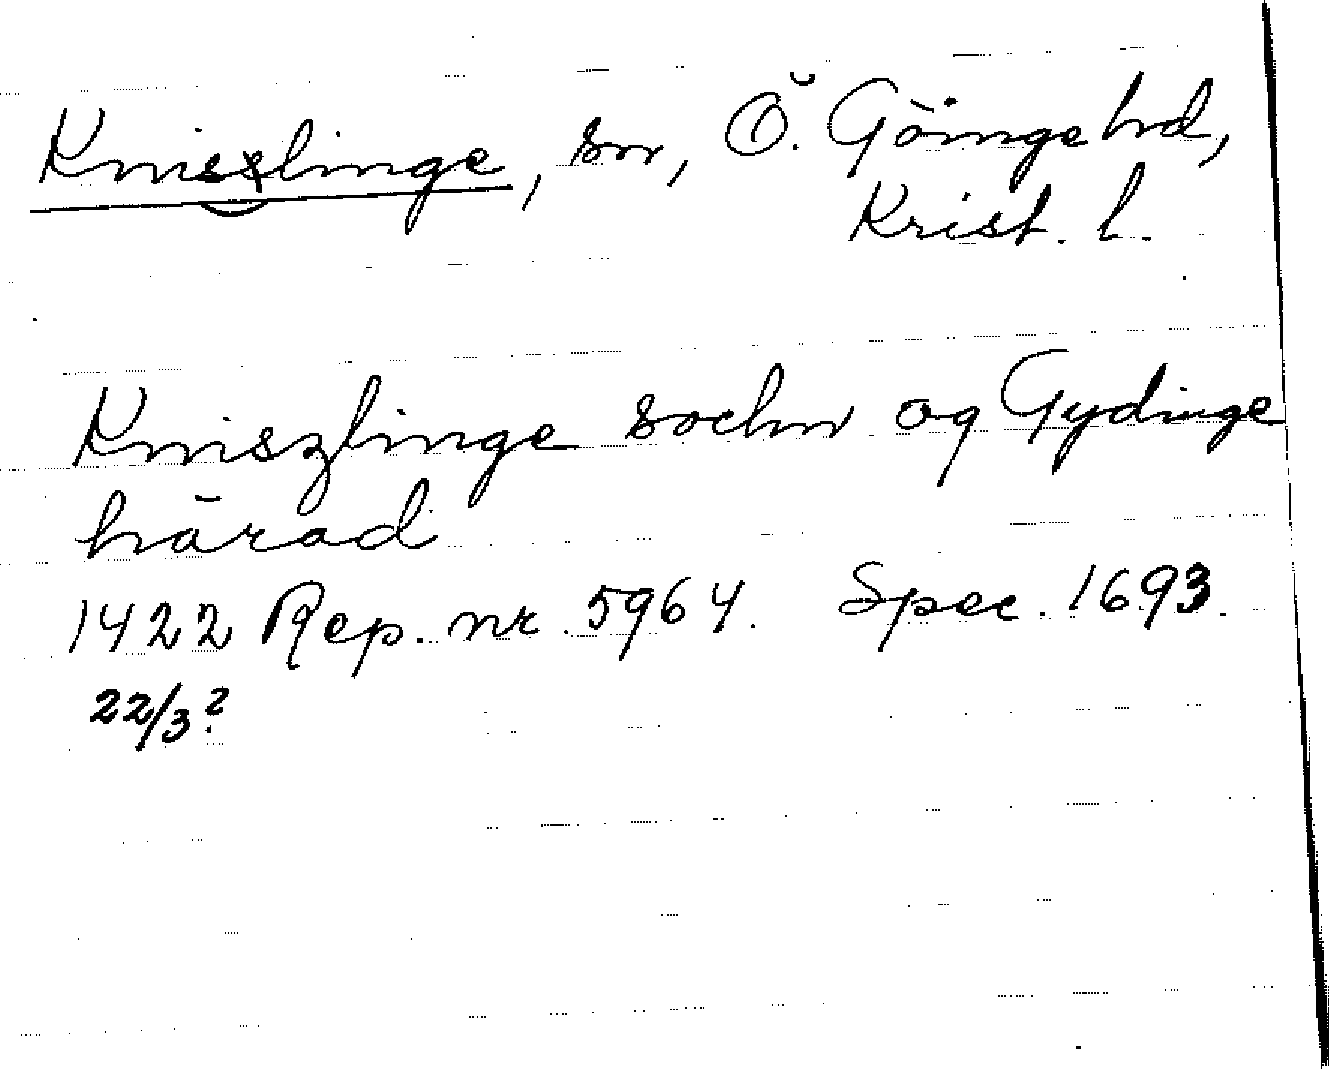 Knisslinge, sn, Ö. Göinge hd,
Krist. l.
Kniszlinge sochn og Gydinge
härad
1422 Rep. nr 5964. Spec. 1693.
22/3?